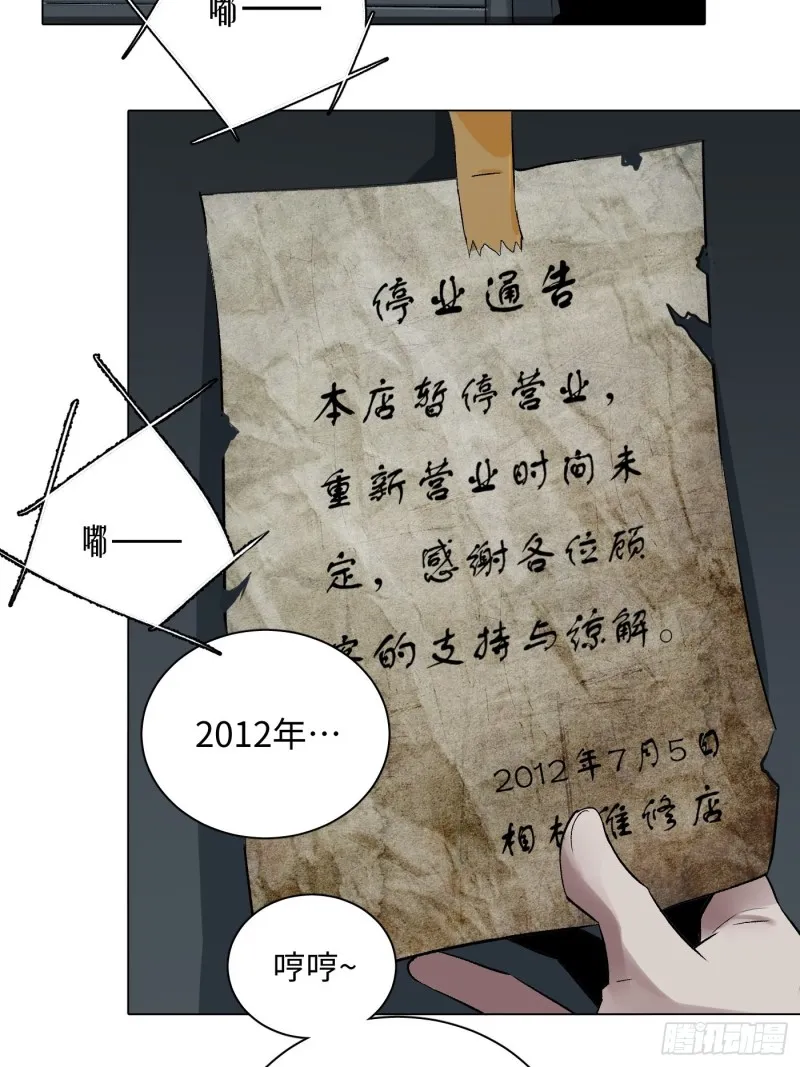 嘟——
停业通告
本店暂停营业，
重新营业时间未
定，感谢各位顾
客的支持与谅解。
嘟——
2012年…
2012年7月5日
相机维修店
哼哼~
腾讯动漫